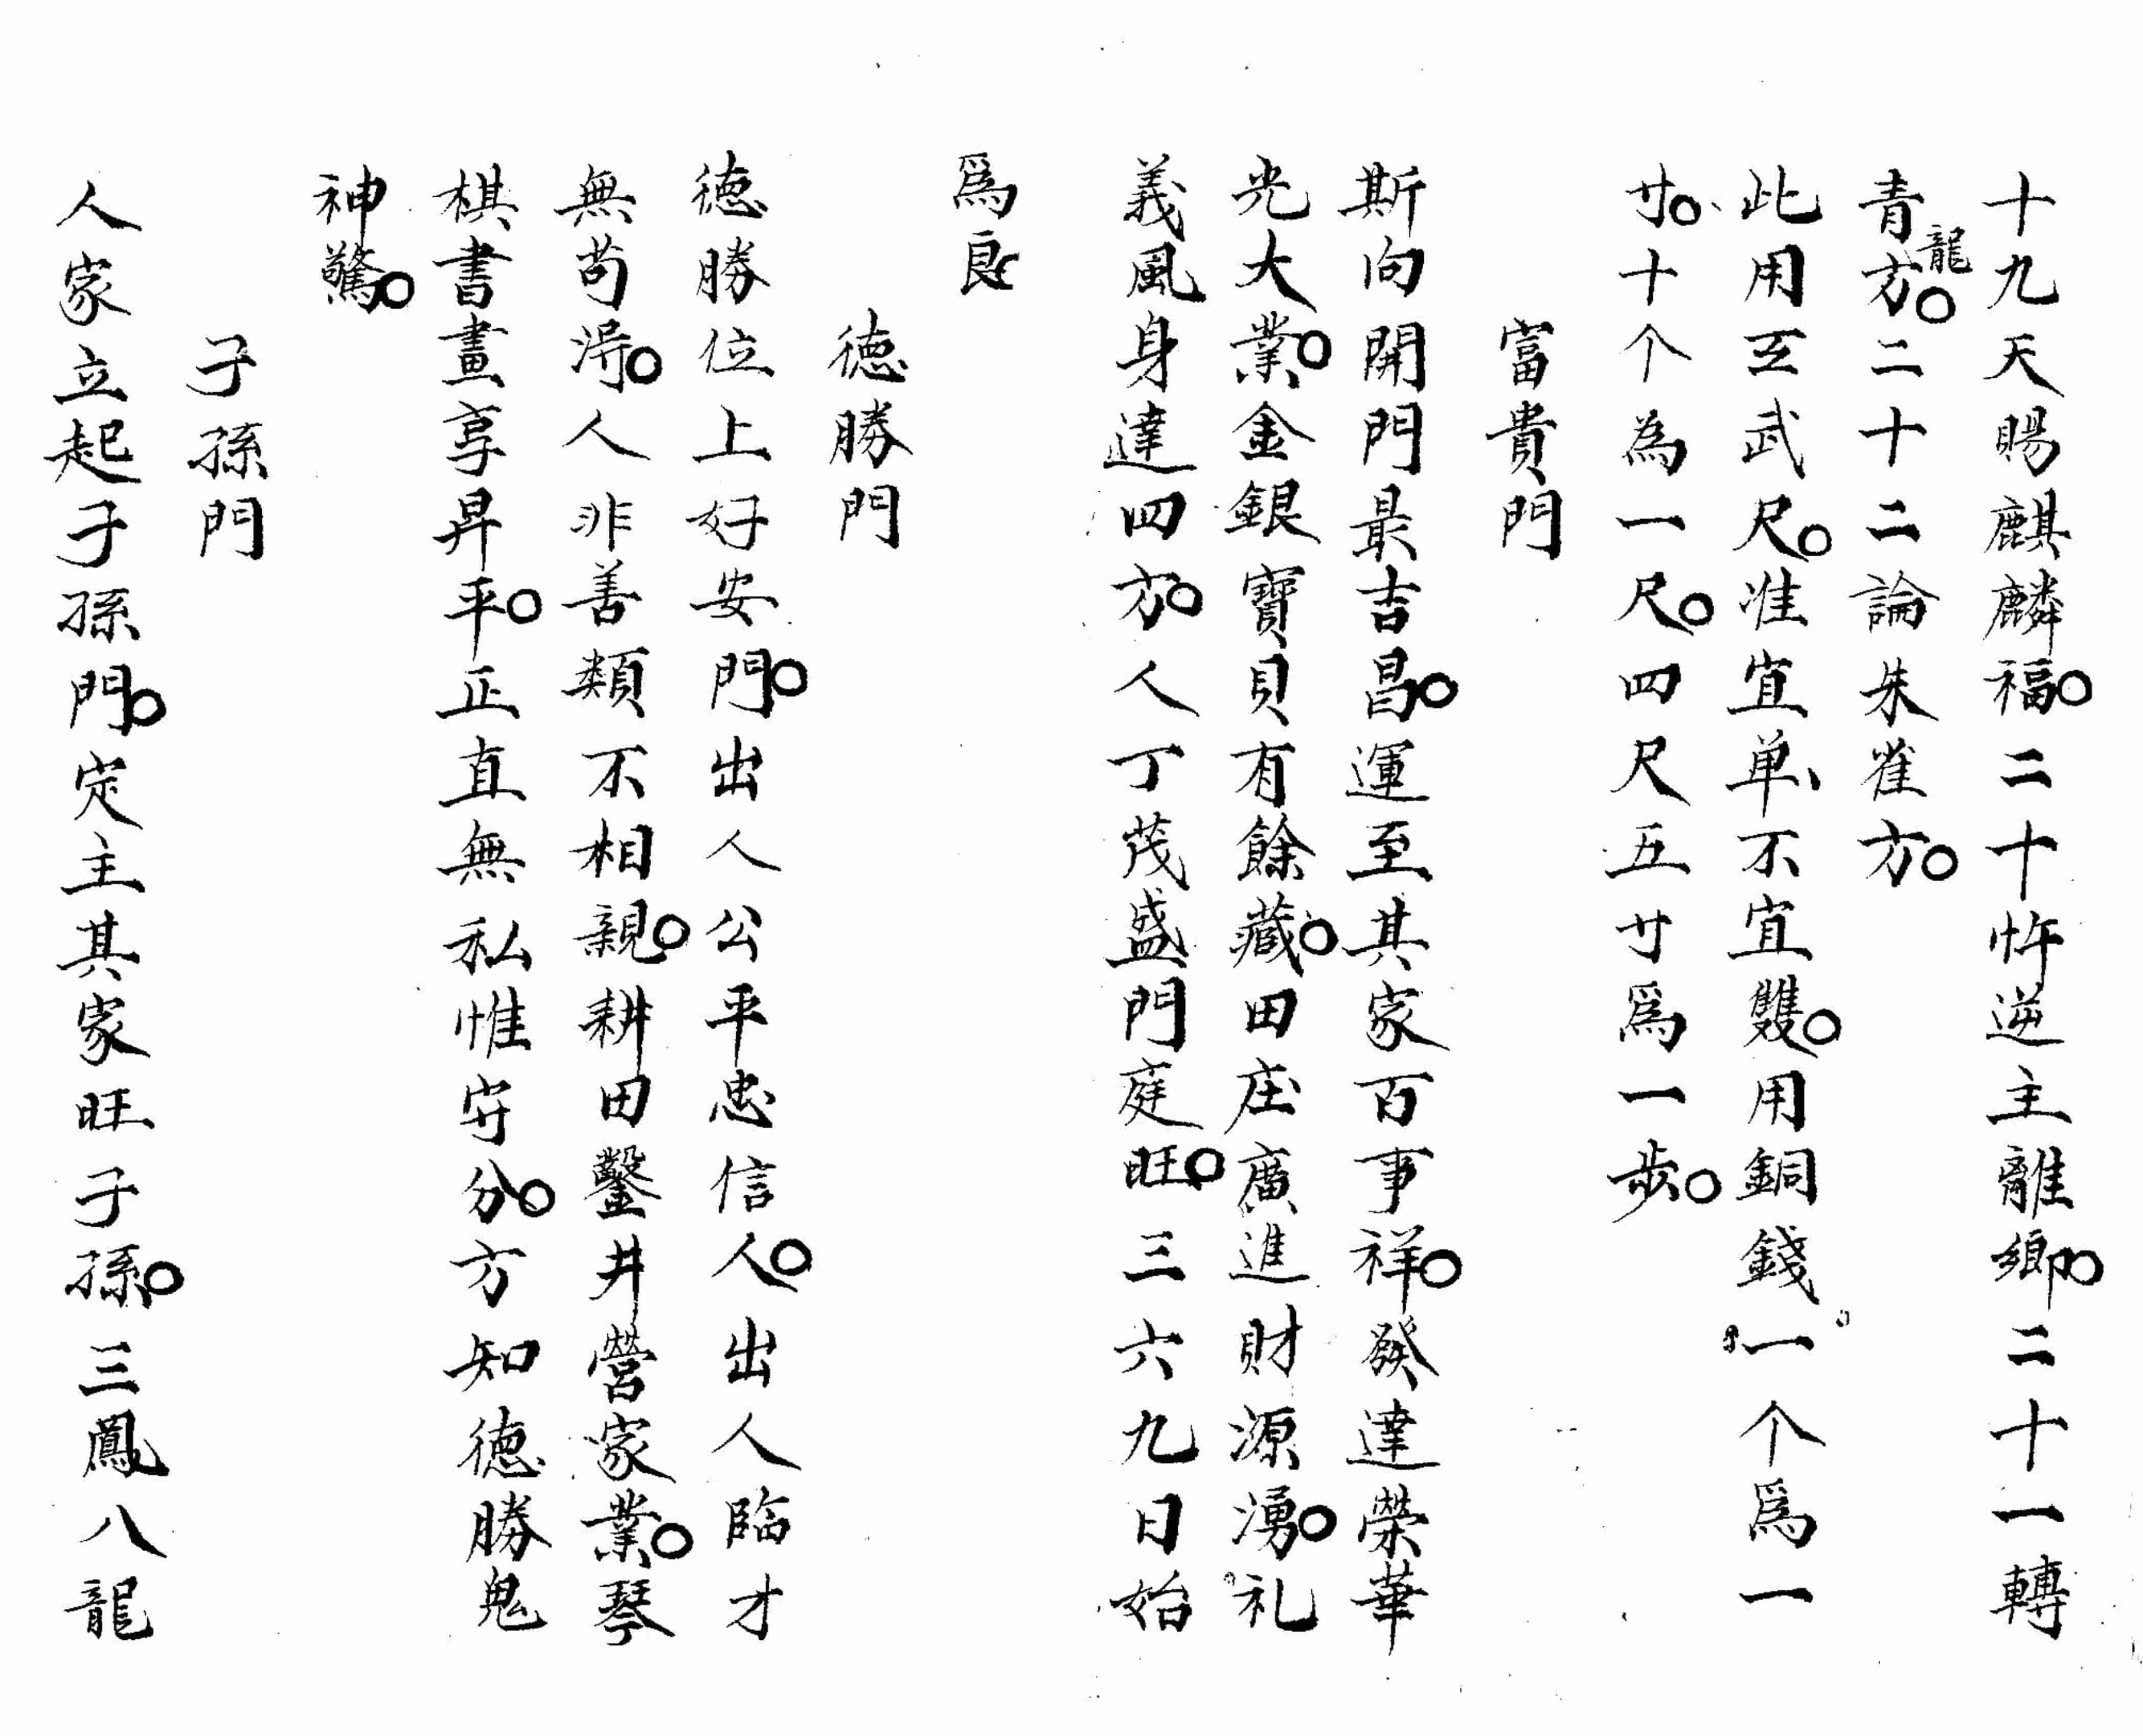 十九天賜麒麟福○二十忤逆主離鄉○二十一轉
青龍方○二十二論朱雀方○
此用玄武尺○准宜单不宜雙○用銅錢一个爲一
寸○十个為一尺○四尺五寸爲一步○
富貴門
斯向開門最吉昌○運至其家百事祥○發達榮華
光大業○金銀寶貝有餘藏○田庄廣進財源湧○礼
義風身達四方○人丁茂盛門庭旺○三六九日始
爲良
德勝門
德勝位上好安門○出人公平忠信人○出人臨才
無苟淂○人非善類不相親○耕田鑿井營家業○琴
棋書畫享昇平○正直無私惟安分○方知德勝鬼
神驚○
子孫門
人家立起子孫門○定主其家旺子孫○三鳳八龍